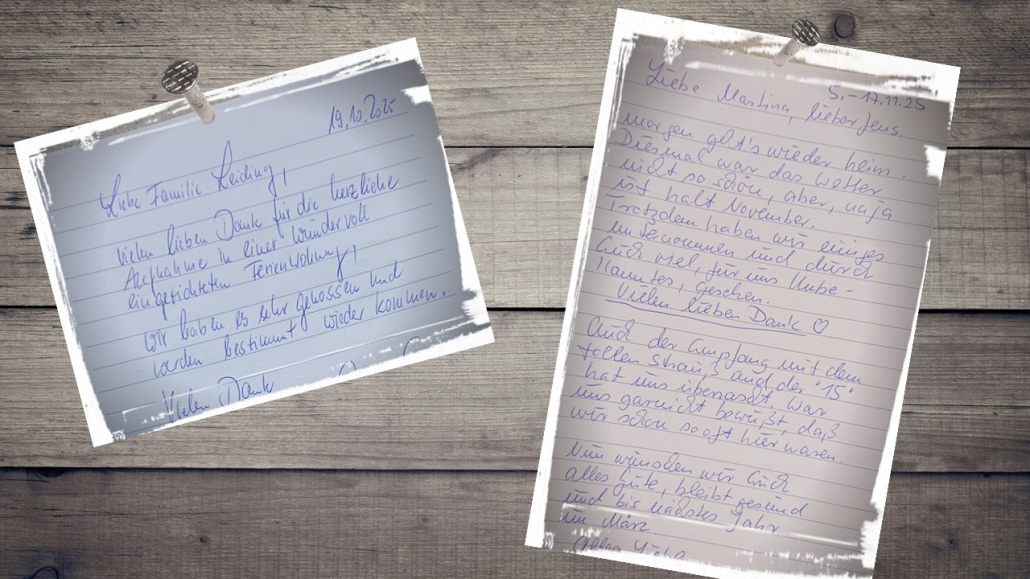 19.10.2025
Liebe Familie Leichny!
Vielen lieben Dank für die herzliche
Aufnahme in einer wundervoll
eingerichteten Ferienwohnung!
Wir haben es sehr genossen und
werden bestimmt wieder kommen.
Vielen Dank
5.-17.11.25
Liebe Martina, lieber Jens.
morgen geht's wieder heim.
Diesmal war das Wetter
nicht so schön, aber, naja
ist halt November.
Trotzdem haben wir einiges
unternommen und durch
Euch viel, für uns Unbe-
kanntes, gesehen.
Vielen lieben Dank ♡
Auch der Empfang mit dem
tollen Strauß und der "15"
hat uns überrascht. War
uns garnicht bewußt, daß
wir schon so oft hier waren.
Nun wünschen wir Euch
alles Gute, bleibt gesund
und bis nächstes Jahr
im März
Alles Liebe